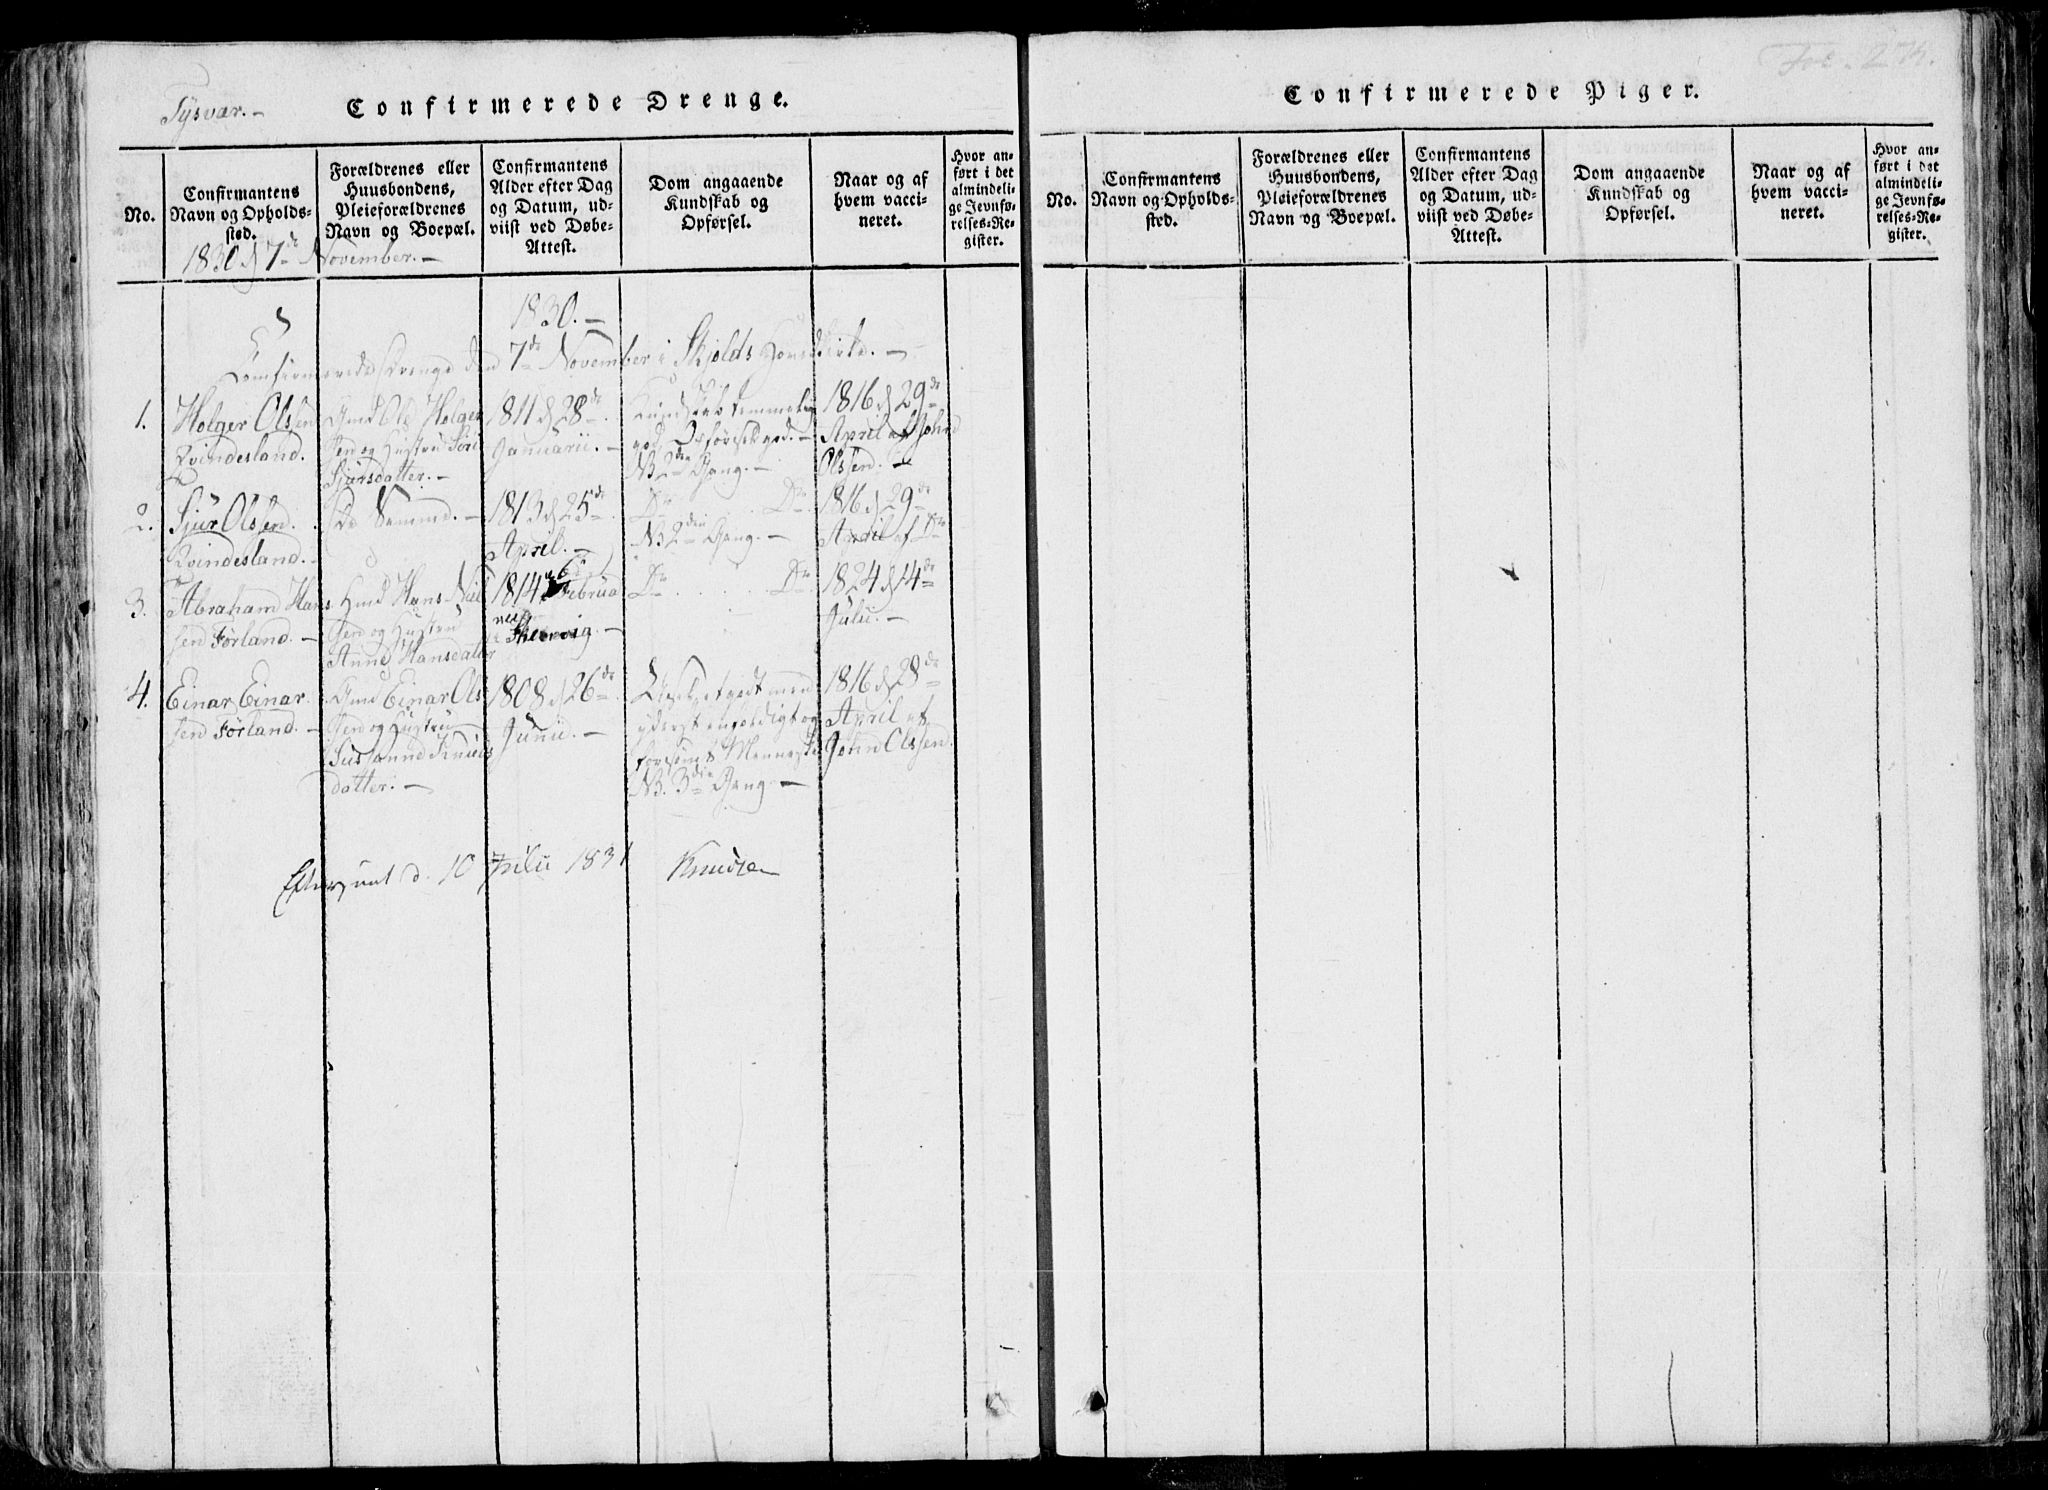 Tysvær.-
Confirmerede Drenge.
No.
Confirmantens
Navn og Opholds-
sted.
Forældrenes eller
Huusbondens,
Pleieforældrenes
Navn og Boepæl.
Confirmantens
Alder efter Dag
og Datum, ud-
viist ved Døbe-
Attest.
Dom angaaende
Kundskab og
Opførsel.
Naar og af
hvem vacci-
neret.
Hvor an-
ført i det
almindeli-
ge Jevnfø-
relses-Re-
gister.
1830 d 7de November.-
1830.-
Confirmerede Drenge den 7de November i Skjolds Hovedkirke.-
1.
Holger Olsen
Qvindesland.
Gmd Ole Holger
sen og Hustru Siri
Sjursdatter.-
1811 d 28de
Januarii.-
Kundskab temmelig
god, Opførsel god.-
NB 2den Gang.-
1816 d 29de
April af John
Olssen.-
2.
Sjur Olsen.
Qvindesland.-
De Samme.-
1813 d 25de
April.-
Do . . . Do
NB 2den Gang.-
1816 d 29de
April af Do
3.
Abraham Hans
sen Førland.-
Hmd Hans Niel
sen og Hustru
Anne Hansdatter
1814 6 Februa
Do . . . Do
1824 d 14de
Julii.-
4.
Einar Einar
sen Førland.-
Gmd Einar Ols
sen og Hustru
Susanne Knuds
datter.-
1808 d 26de
Junii.-
godt men
yderst enfoldigt og
forsømt Menneske
NB. 3die Gang-
1816 d 28de
April af
John Olssen.
Efterseet d. 10 Julii 1831 Knudsen
Fol. 274.
Confirmerede Piger.
No.
Confirmantens
Navn og Opholds-
sted.
Forældrenes eller
Huusbondens,
Pleieforældrenes
Navn og Boepæl.
Confirmantens
Alder efter Dag
og Datum, ud-
viist ved Døbe-
Attest.
Dom angaaende
Kundskab og
Opførsel.
Naar og af
hvem vacci-
neret.
Hvor an-
ført i det
almindeli-
ge Jevnfø-
relses-Re-
gister.